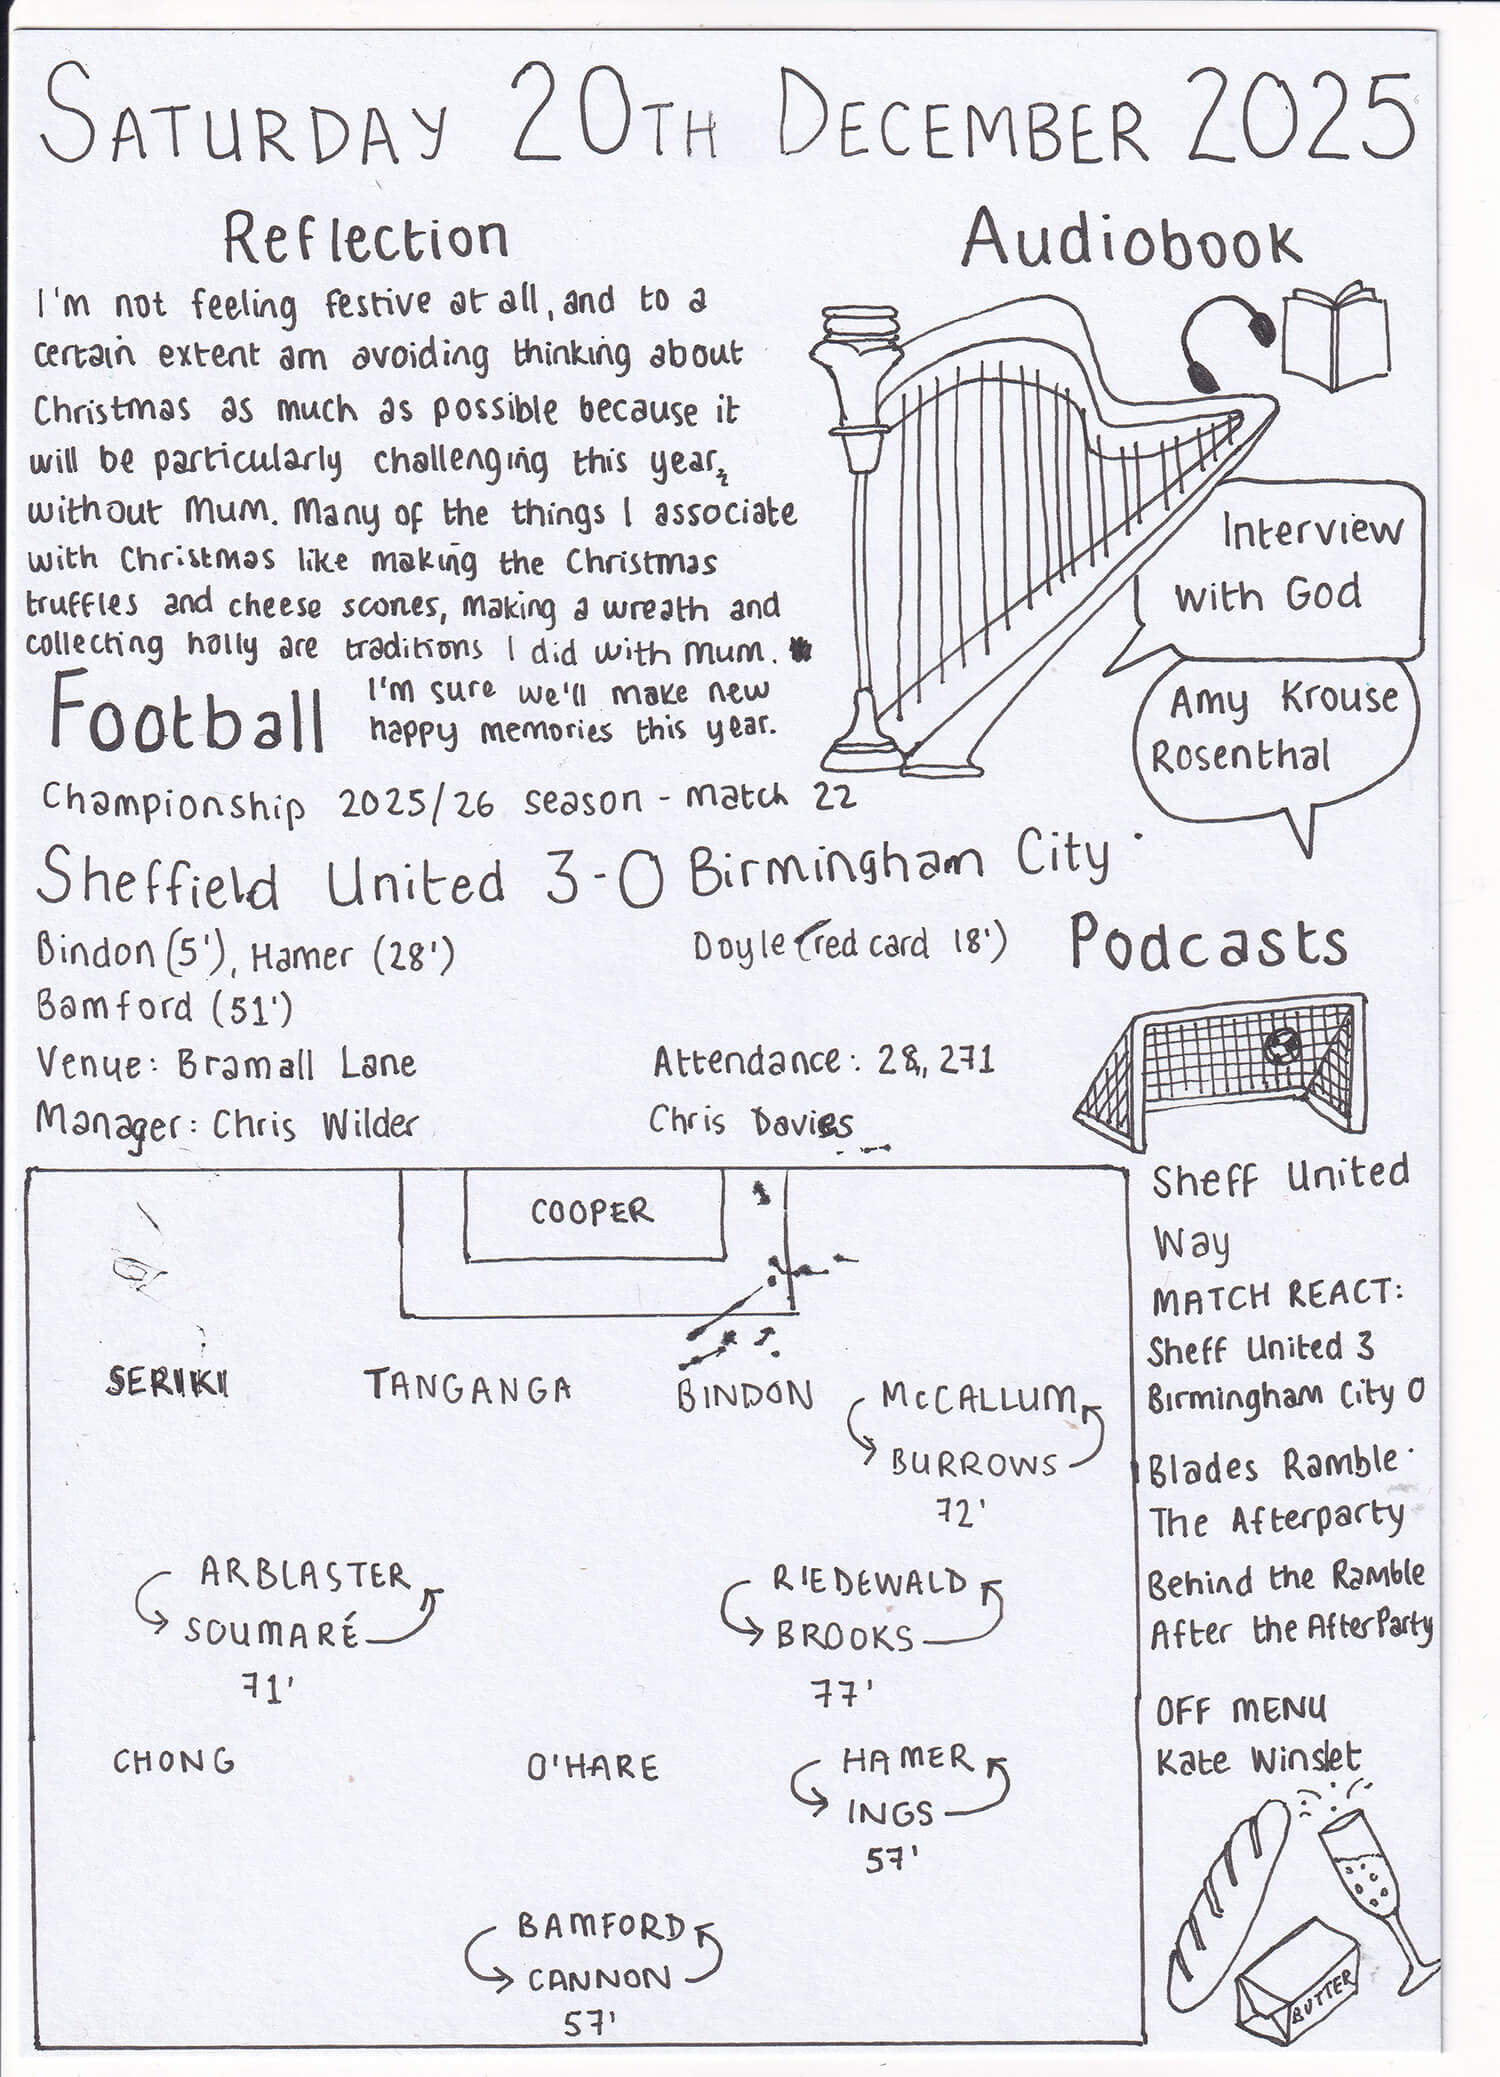 SATURDAY 20TH DECEMBER 2025
Reflection
I'm not feeling festive at all, and to a
certain extent am avoiding thinking about
Christmas as much as possible because it
will be particularly challenging this year,
without Mum. Many of the things I associate
with Christmas like making the Christmas
truffles and cheese scones, making a wreath and
collecting holly are traditions I did with Mum.
I'm sure we'll make new
happy memories this year.
Audiobook
Interview
with God
Amy Krouse
Rosenthal
Football
Championship 2025/26 season - match 22
Sheffield United 3-0 Birmingham City
Bindon (5'), Hamer (28')
Doyle (red card 18')
Bamford (51')
Venue: Bramall Lane
Attendance: 28,271
Manager: Chris Wilder
Chris Davies
COOPER
SERIKI TANGANGA BINDON McCALLUM
BURROWS
72'
ARBLASTER RIEDEWALD
SOUMARÉ BROOKS
71' 77'
CHONG O'HARE HAMER
INGS
57'
BAMFORD
CANNON
57'
Podcasts
Sheff United
Way
MATCH REACT:
Sheff United 3
Birmingham City 0
Blades Ramble
The Afterparty
Behind the Ramble
After the AfterParty
OFF MENU
Kate Winslet
BUTTER